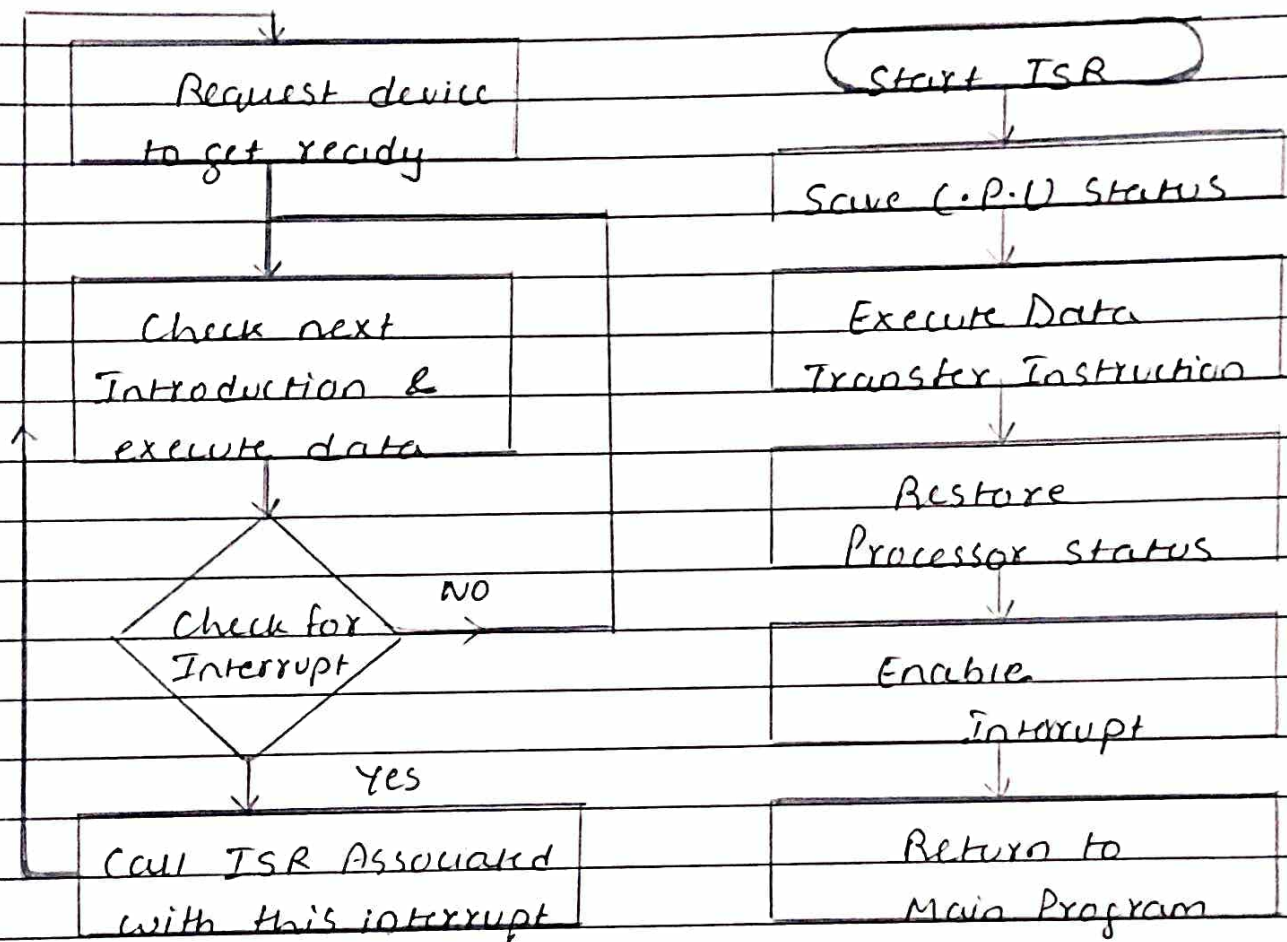 Request device
to get ready
Check next
Introduction &
execute data
Check for
Interrupt
NO
Yes
Call ISR Associated
with this interrupt
Start ISR
Save C.P.U Status
Execute Data
Transfer Instruction
Restore
Processor status
Enable
Interrupt
Return to
Main Program